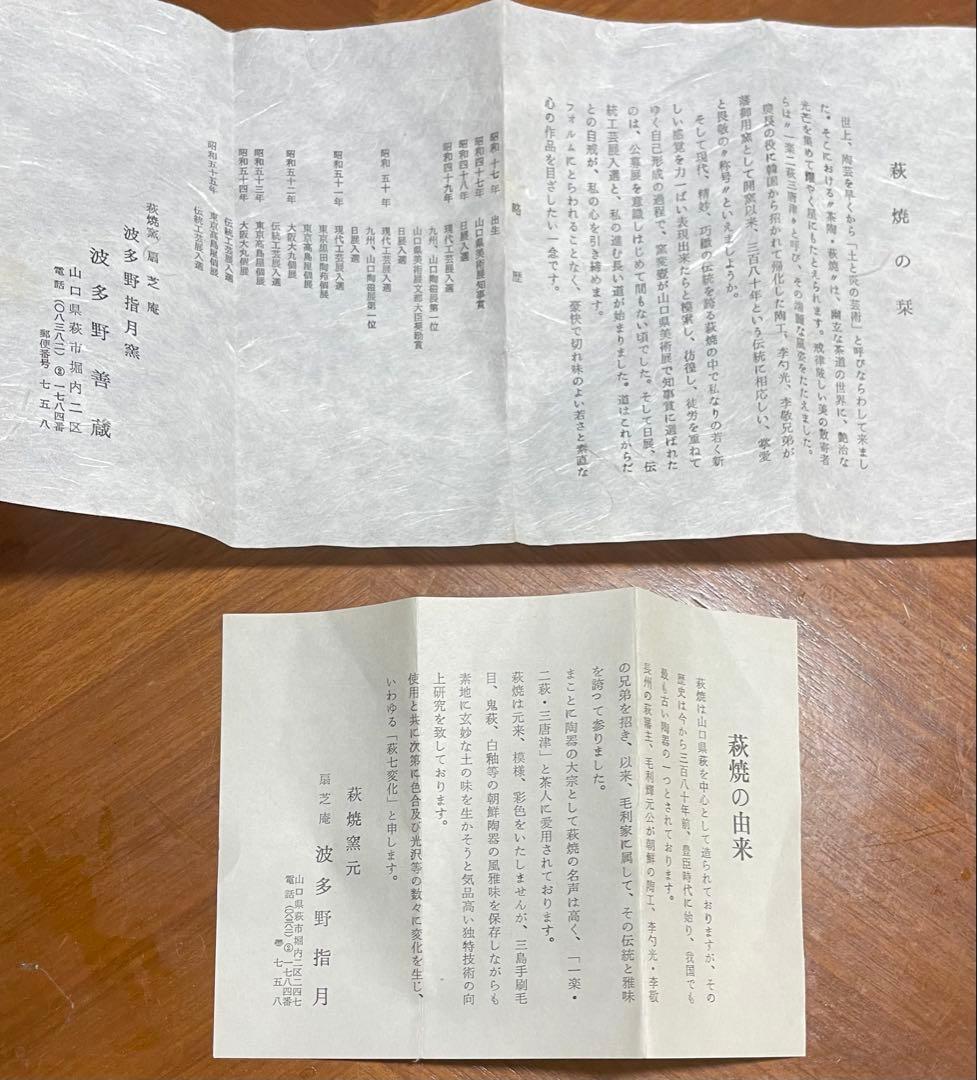 萩焼の栞
世上、陶芸を早くから「土と炎の芸術」と呼びならわして来まし
た。そこにおける〝茶陶・萩焼〟は、幽玄な茶道の世界に、艶冶な
光芒を集めて耀やく星にもたとえられます。戒律厳しい美の数寄者
らは〝一楽二萩三唐津〟と呼び、その端麗な風姿をたたえました。
慶長の役に韓国から招かれて帰化した陶工、李勺光、李敬兄弟が
藩御用窯として開窯以来、三百八十年という伝統に相応しい、敬愛
と畏敬の〝称号〟といえましょうか。
そして現代、精妙、巧緻の伝統を誇る萩焼の中で私なりの若く新
しい感覚を力一ぱい表現出来たらと模索し、彷徨し、徒労を重ねて
ゆく自己形成の過程で、窯変壺が山口県美術展で知事賞に選ばれた
のは、公募展を意識しはじめて間もない頃でした。そして日展、伝
統工芸展入選と、私の進む長い道が始まりました。道はこれからだ
との自戒が、私の心を引き締めます。
フォルムにとらわれることなく、豪快で切れ味のよい若さと素直な
心の作品を目ざしたい一念です。
略歴
昭和十七年 出生
昭和四十七年 山口県美術展知事賞
昭和四十八年 日展入選
昭和四十九年 現代工芸展入選
九州、山口陶磁展第一位
山口県美術展文部大臣奨励賞
日展入選
昭和五十年 現代工芸展入選
九州、山口陶磁展第一位
日展入選
昭和五十一年 現代工芸展入選
東京黒田陶苑個展
東京高島屋個展
昭和五十二年 大阪大丸個展
伝統工芸展入選
昭和五十三年 東京高島屋個展
昭和五十四年 大阪大丸個展
伝統工芸展入選
昭和五十五年 東京高島屋個展
伝統工芸展入選
萩焼窯扇芝庵
波多野指月窯
波多野善蔵
山口県萩市堀内二区
電話(〇八三八二)②一七八四番
郵便番号七五八
萩焼の由来
萩焼は山口県萩を中心として造られておりますが、その
歴史は今から三百八十年前、豊臣時代に始り、我国でも
最も古い陶器の一つとされております。
長州の萩藩主、毛利輝元公が朝鮮の陶工、李勺光・李敬
の兄弟を招き、以来、毛利家に属して、その伝統と雅味
を誇つて参りました。
まことに陶器の大宗として萩焼の名声は高く、「一楽・
二萩・三唐津」と茶人に愛用されております。
萩焼は元来、模様、彩色をいたしませんが、三島手刷毛
目、鬼萩、白釉等の朝鮮陶器の風雅味を保存しながらも
素地に玄妙な土の味を生かそうと気品高い独特技術の向
上研究を致しております。
使用と共に次第に色合及び光沢等の数々に変化を生じ、
いわゆる「萩七変化」と申します。
萩焼窯元
扇芝庵 波多野指月
山口県萩市堀内二区二四七
電話(〇八三八二)②一七八四番
〒七五八